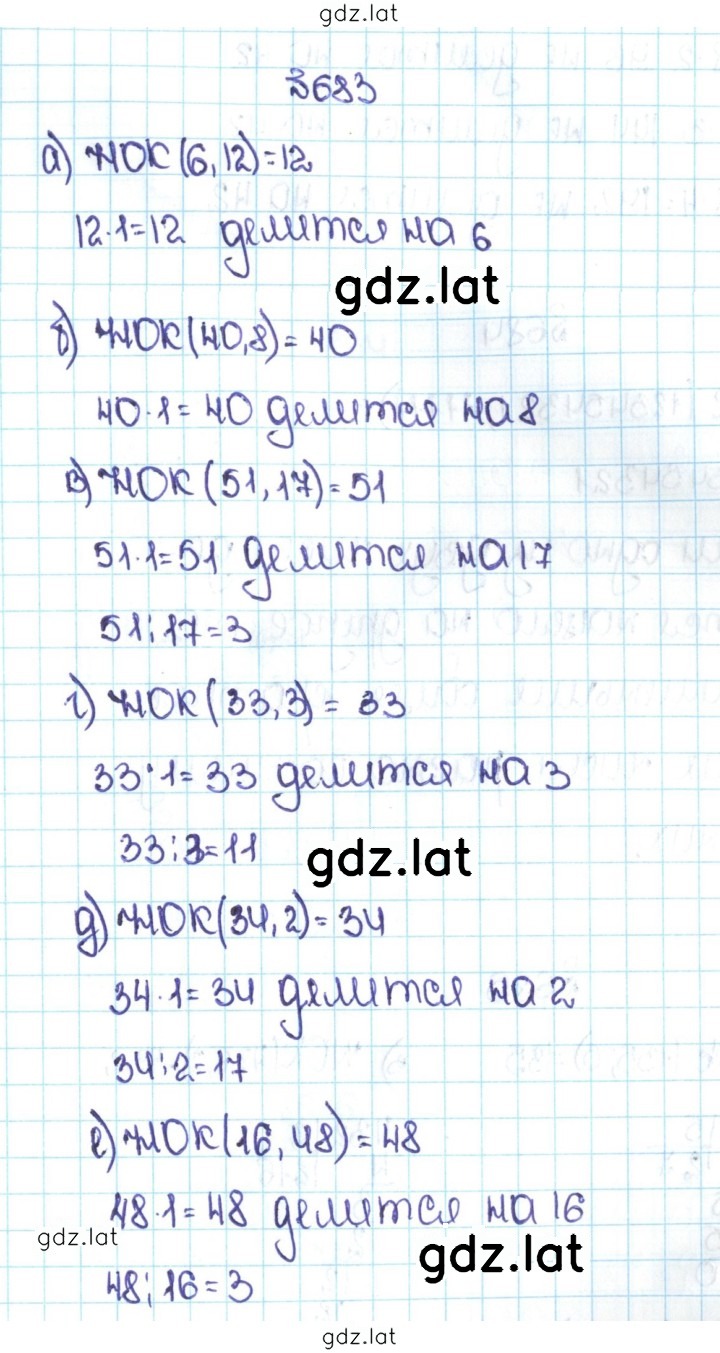 gdz.lat
№683
а) НОК(6,12)=12
12·1=12 делится на 6
gdz.lat
б) НОК(40,8)=40
40·1=40 делится на 8
в) НОК(51,17)=51
51·1=51 делится на 17
51:17=3
г) НОК(33,3)=33
33·1=33 делится на 3
33:3=11
gdz.lat
д) НОК(34,2)=34
34·1=34 делится на 2
34:2=17
е) НОК(16,48)=48
48·1=48 делится на 16
gdz.lat
gdz.lat
48:16=3
gdz.lat